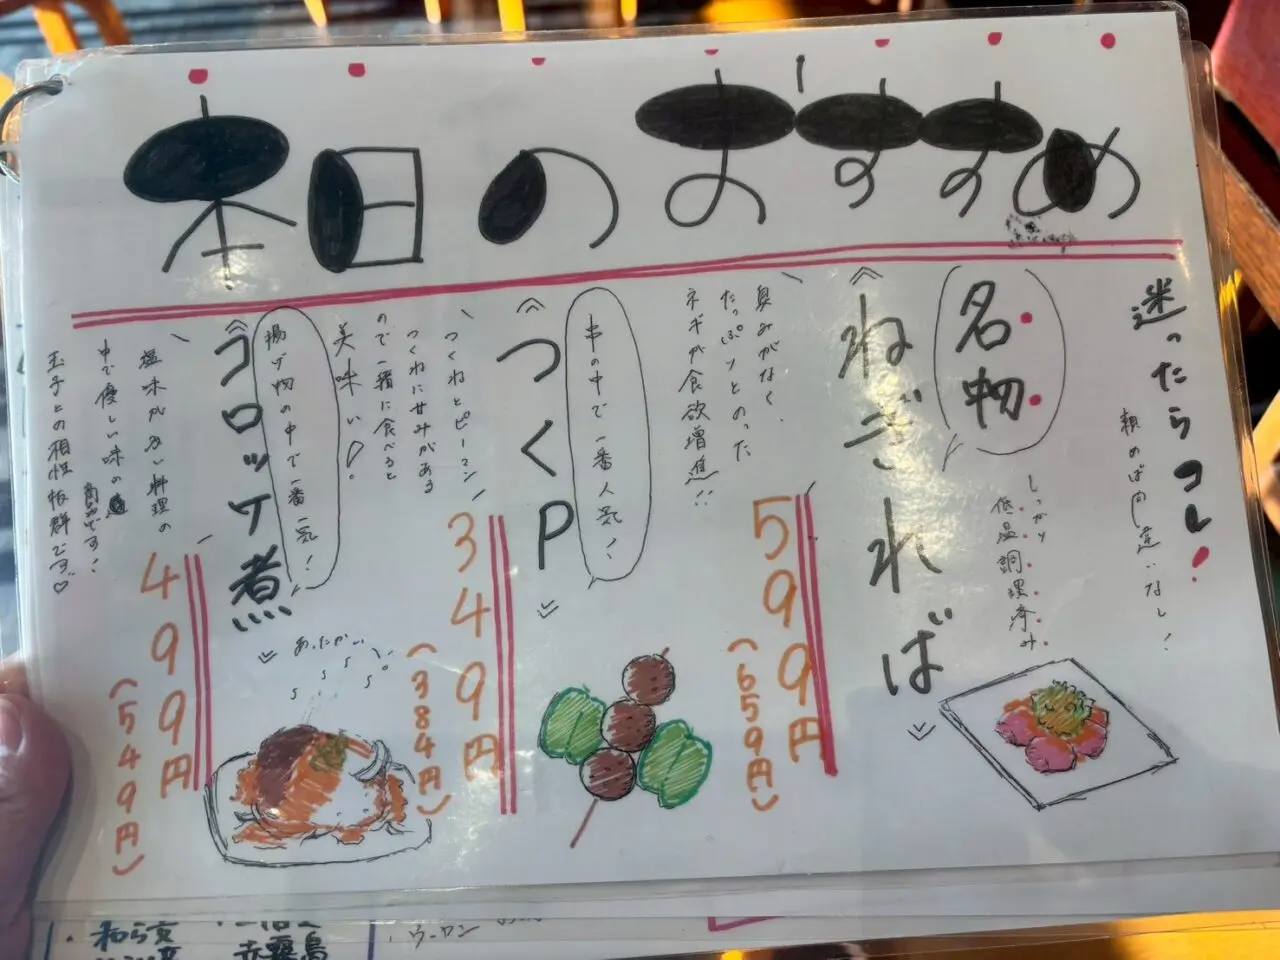 本日のおすすめ
迷ったらコレ!
頼めば間違いなし!
名物
しっかり
低温調理済み
ねぎればー
臭みがなく、
たっぷりとのった
ネギが食欲増進!!
599円
(659円)
串の中で一番人気!
つくP
つくねとピーマン
つくねに甘みがある
ので一緒に食べると
美味い!
349円
(384円)
揚げ物の中で一番人気!
コロッケ煮
塩味が多い料理の
中で優しい味の
商品です!
玉子との相性抜群です♡
あったかい
499円
(549円)
和ら麦
赤霧島
ウーロン